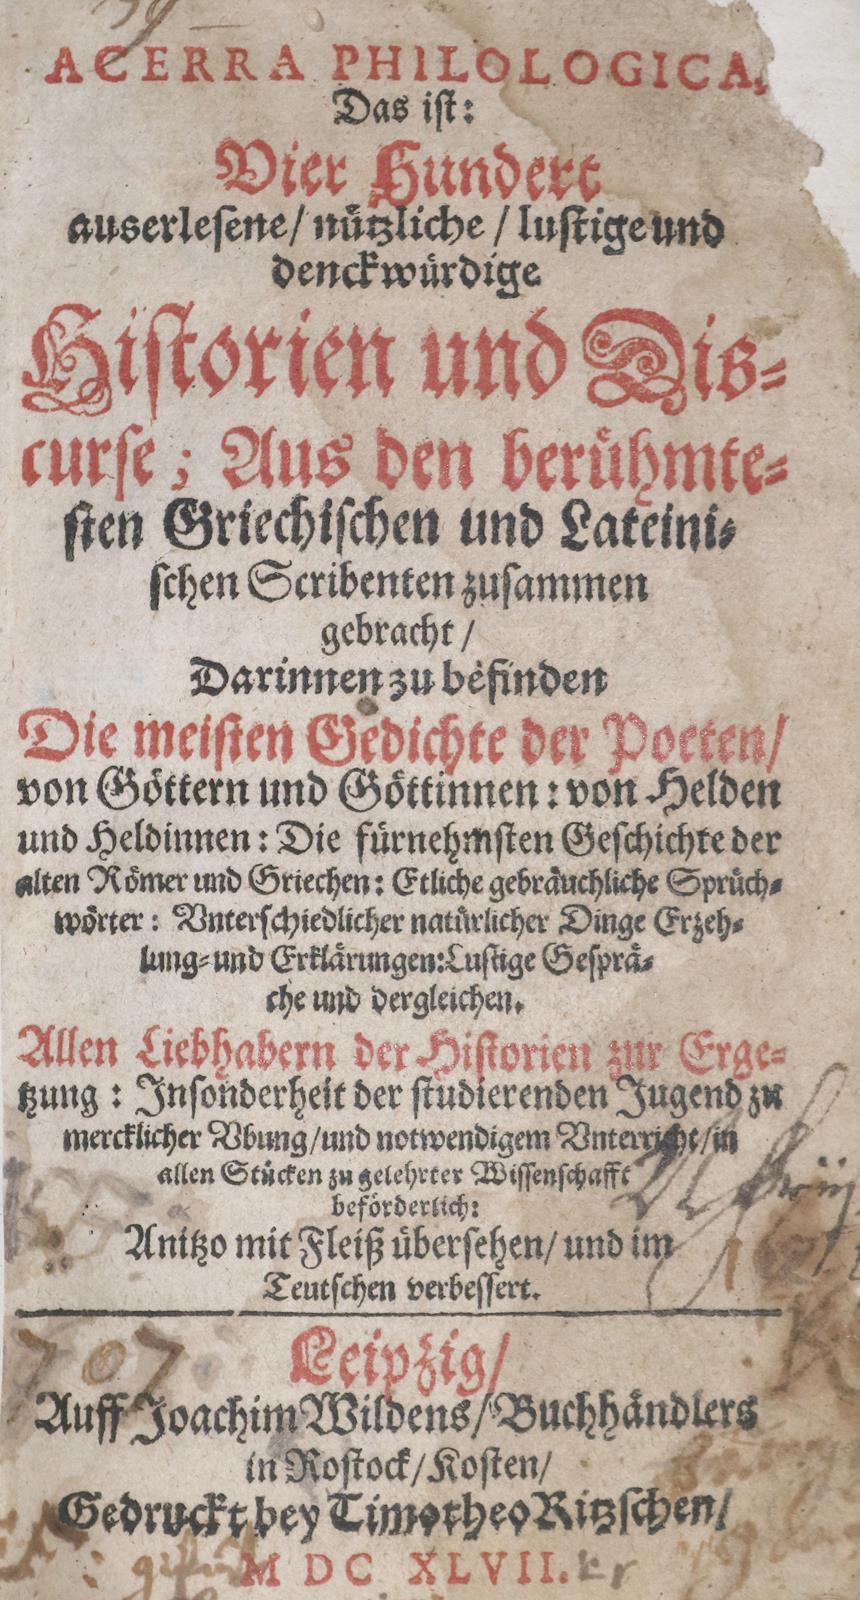 ACERRA PHILOLOGICA,
Das iſt:
Vier Hundert
auserleſene/ nuͤtzliche / luſtige und
denckwuͤrdige
Hiſtorien und Diſ-
curſe; Aus den beruͤhmte-
ſten Griechiſchen und Lateini-
ſchen Scribenten zuſammen
gebracht /
Darinnen zu befinden
Die meiſten Gedichte der Poeten/
von Goͤttern und Goͤttinnen: von Helden
und Heldinnen: Die fuͤrnehmſten Geſchichte der
alten Roͤmer und Griechen: Etliche gebraͤuchliche Spruͤch-
woͤrter: Vnterſchiedlicher natuͤrlicher Dinge Erzeh-
lung- und Erklaͤrungen: Luſtige Geſpraͤ-
che und dergleichen.
Allen Liebhabern der Hiſtorien zur Erge-
tzung: Inſonderheit der ſtudierenden Jugend zu
mercklicher Vbung/ und notwendigem Vnterricht/ in
allen Stuͤcken zu gelehrter Wiſſenſchafft
befoͤrderlich:
Anitzo mit Fleiß uͤberſehen/ und im
Teutſchen verbeſſert.
707
Leipzig/
Auff Joachim Wildens/ Buchhaͤndlers
in Roſtock/ Koſten/
Gedruckt bey Timotheo Ritzſchen/
M DC XLVII.